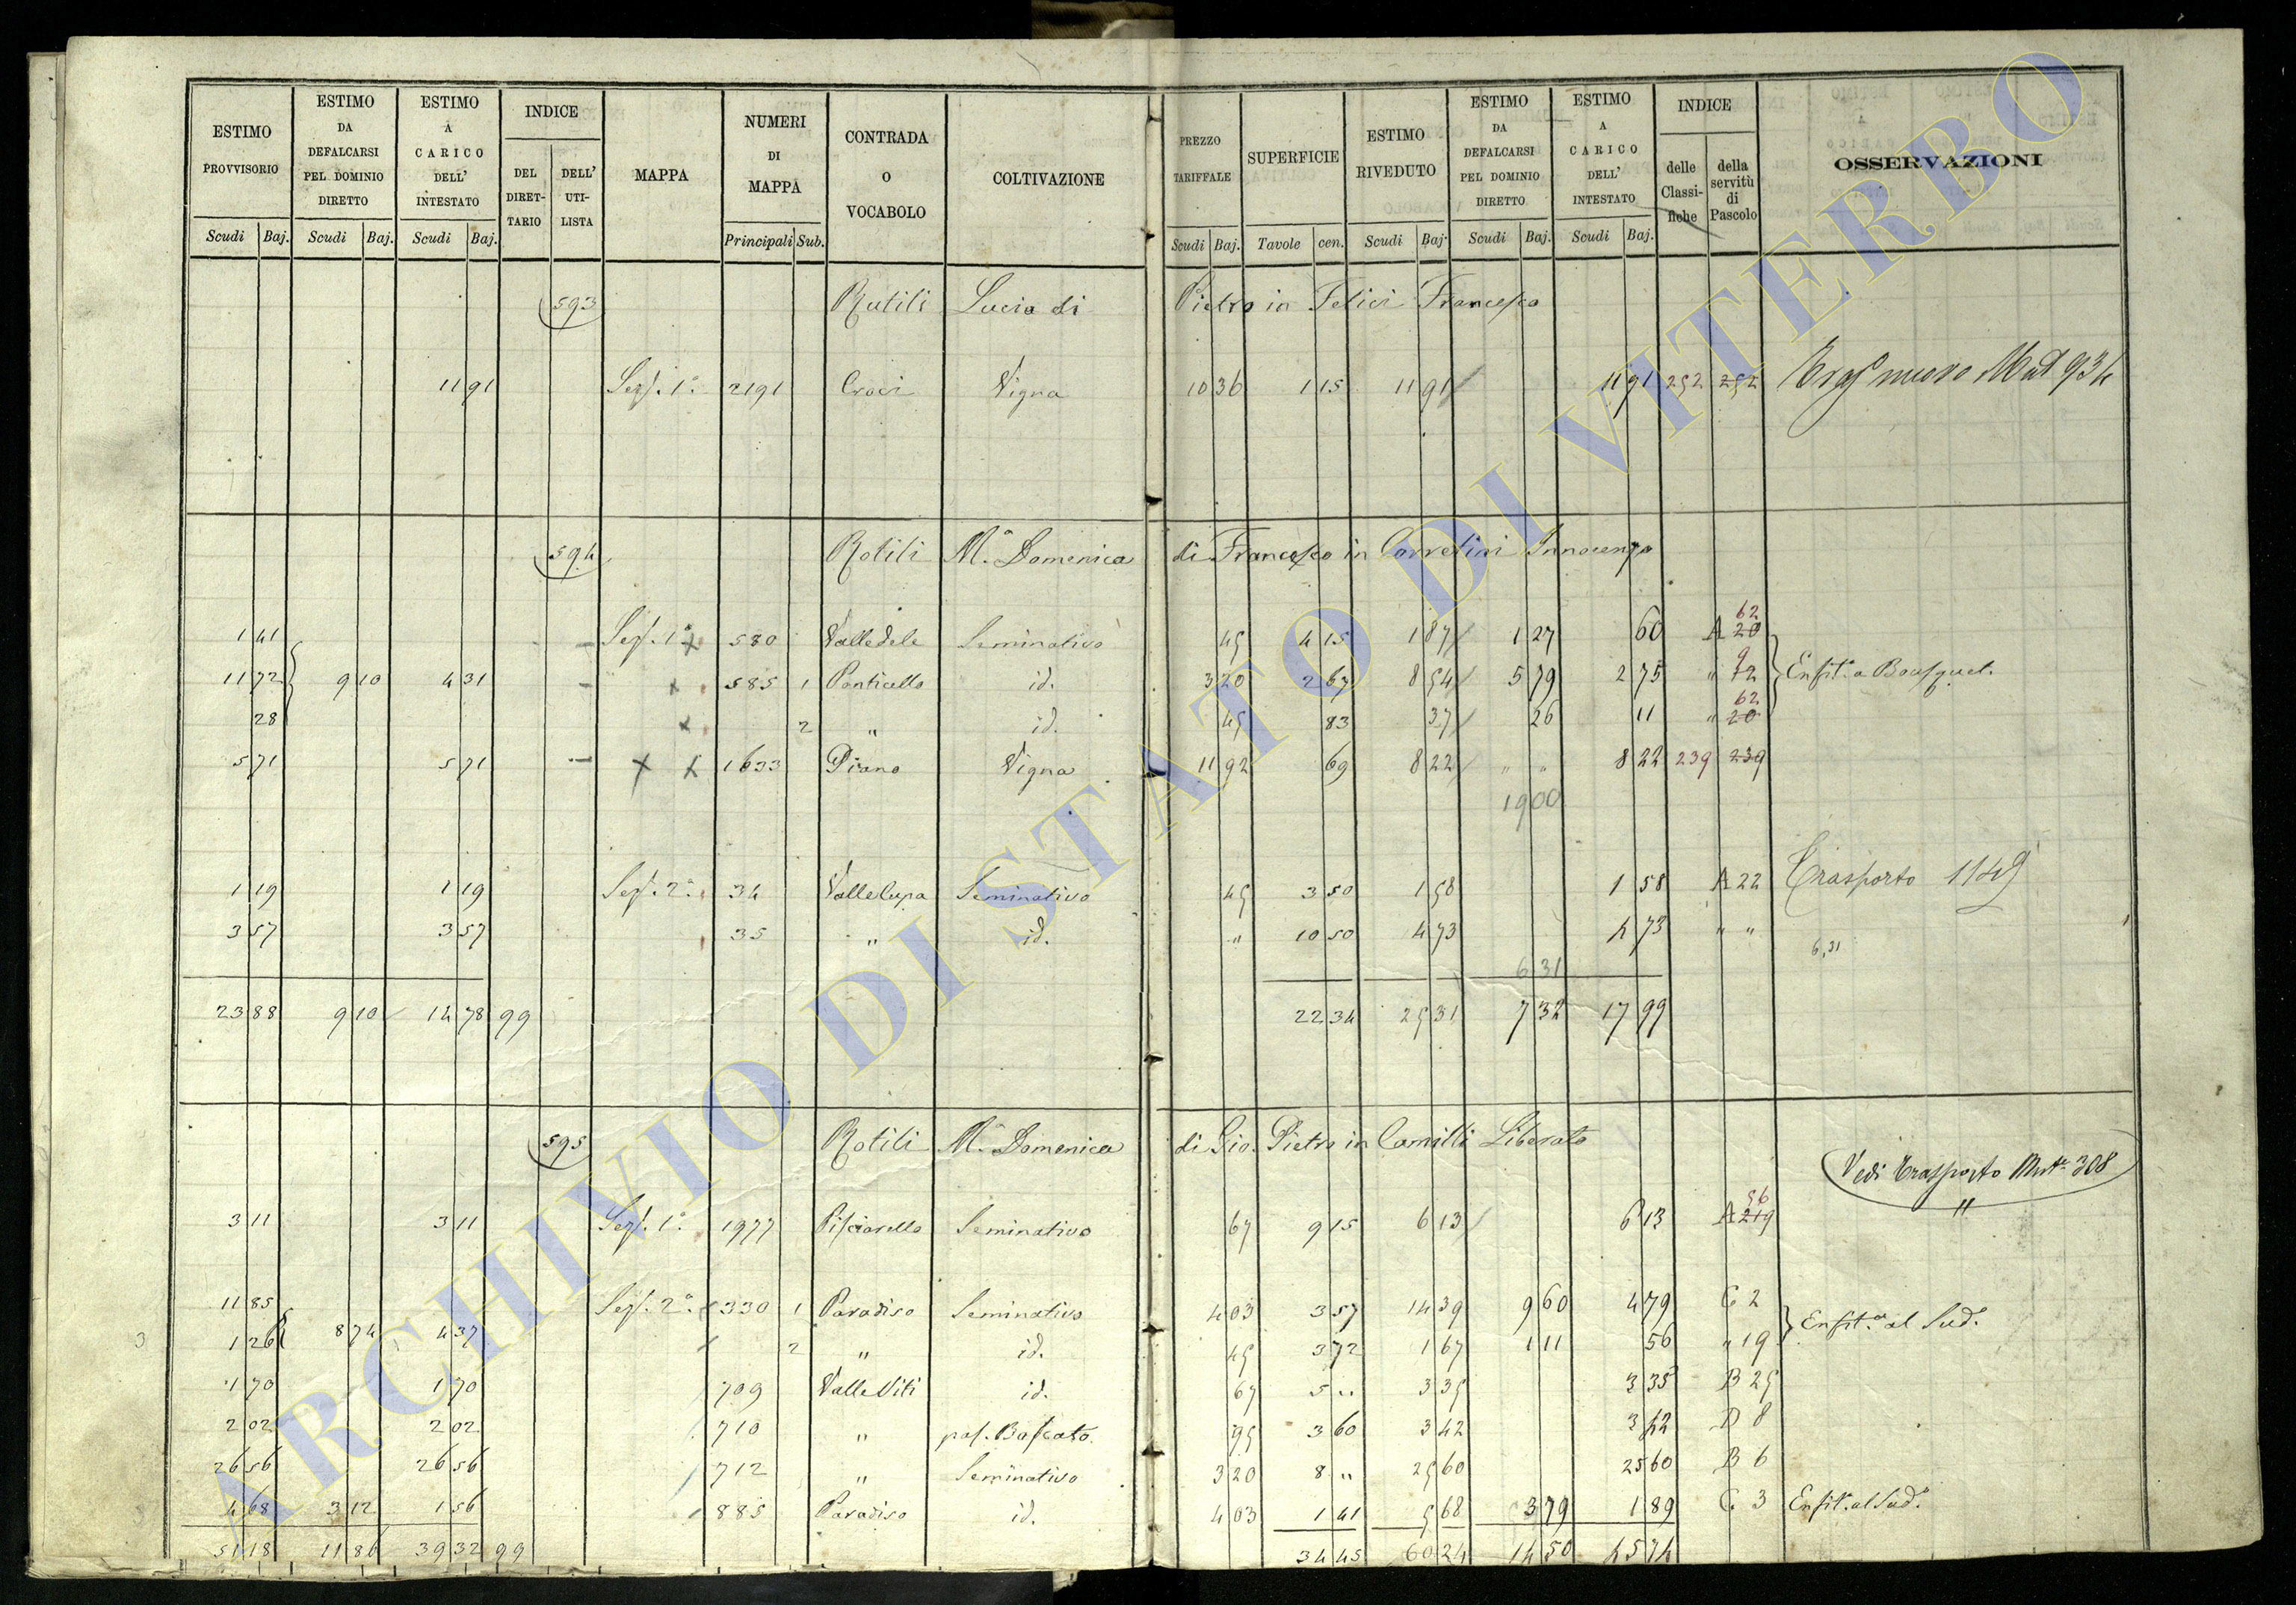 ESTIMO PROVVISORIO | ESTIMO DA DEFALCARSI PEL DOMINIO DIRETTO | ESTIMO A CARICO DELL' INTESTATO | INDICE DEL DIRETTARIO | DELL' UTILISTA | MAPPA | NUMERI DI MAPPA | CONTRADA O VOCABOLO | COLTIVAZIONE | PREZZO TARIFFALE | SUPERFICIE | ESTIMO RIVEDUTO | ESTIMO DA DEFALCARSI PEL DOMINIO DIRETTO | ESTIMO A CARICO DELL' INTESTATO | INDICE delle Classifiche | della servitù di Pascolo | OSSERVAZIONI
Scudi Baj. | Scudi Baj. | Scudi Baj. | Principali Sub. | Scudi Baj. | Tavole cen. | Scudi Baj. | Scudi Baj. | Scudi Baj.
593 Rutili Lucia di Pietro in Felici Francesco
11 91 Sez. 1a 2191 Croci Vigna 10 36 1 15 11 91 11 91 252 252 nuovo 934
594 Rotili Ma Domenica di Francesco in Corretini Innocenzo
1 41 Sez. 1a 580 Valledele Seminativo 45 4 15 1 87 1 27 60 A 20 62
11 72 9 10 4 31 585 1 Ponticello id. 3 20 2 67 8 54 5 79 2 75 " 72 9 Enfit. a Bousquet.
28 2 " id. 45 83 37 26 11 " 20 62
5 71 5 71 1633 Piano Vigna 11 92 69 8 22 " " 8 22 239 239
1900
1 19 1 19 Sez. 2a 34 Vallecupa Seminativo 45 3 50 1 58 1 58 A 22 Trasporto 1149
3 57 3 57 35 " id. " 10 50 4 73 4 73 " " 6,31
6 31
23 88 9 10 14 78 99 22 34 25 31 7 32 17 99
595 Rotili Ma Domenica di Gio. Pietro in Camilli Liberato
Vedi Trasporto 308
"
3 11 3 11 Sez. 1a 1977 Pisciarello Seminativo 67 9 15 6 13 6 13 A 219 56
11 85 Sez. 2a 330 1 Paradiso Seminativo 4 03 3 57 14 39 9 60 4 79 C 2 Enfit. al Sud.
3 1 26 8 74 4 37 2 " id. 45 3 72 1 67 1 11 56 " 19
1 70 1 70 709 Valle Viti id. 67 5 " 3 35 3 35 B 25
2 02 2 02 710 " pas. Boscato. 95 3 60 3 42 3 42 D 8
26 56 26 56 712 " Seminativo 3 20 8 " 25 60 25 60 B 6
4 68 3 12 1 56 885 Paradiso id. 4 03 1 41 5 68 3 79 1 89 C 3 Enfit. al Sud.
51 18 11 86 39 32 99 34 45 60 24 14 50 45 74
ARCHIVIO DI STATO DI VITERBO